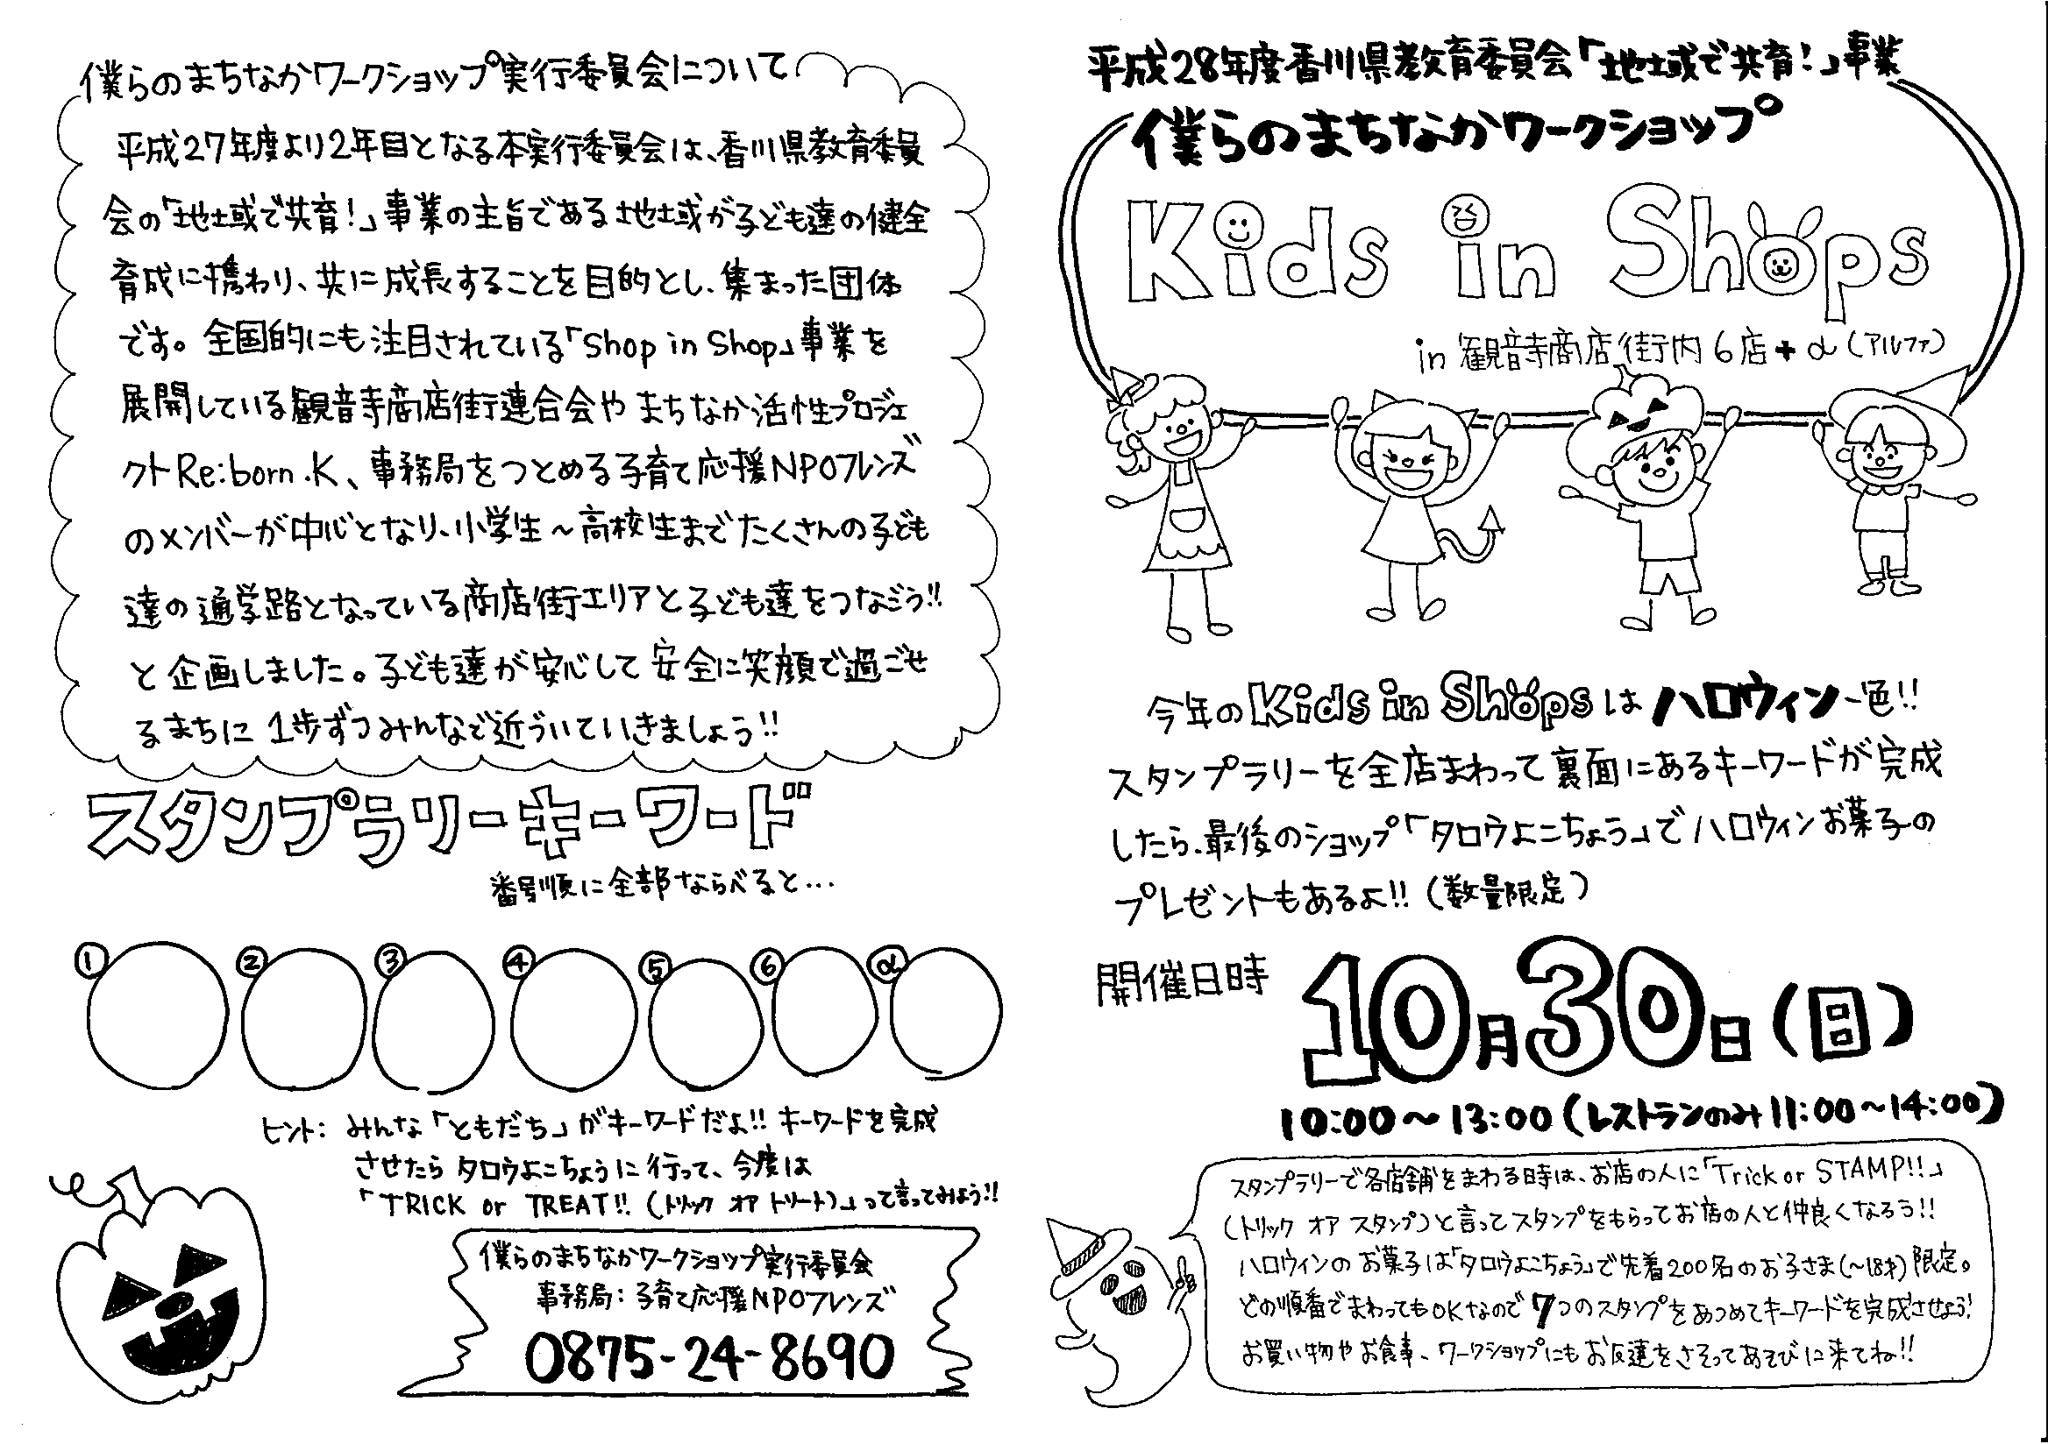 僕らのまちなかワークショップ実行委員会について
平成27年度より2年目となる本実行委員会は、香川県教育委員
会の「地域で共育!」事業の主旨である地域が子ども達の健全
育成に携わり、共に成長することを目的とし、集まった団体
です。全国的にも注目されている「Shop in Shop」事業を
展開している観音寺商店街連合会やまちなか活性プロジェ
クトRe:born.K、事務局をつとめる子育て応援NPOフレンズ
のメンバーが中心となり、小学生～高校生までたくさんの子ども
達の通学路となっている商店街エリアと子ども達をつなごう!!
と企画しました。子ども達が安心して安全に笑顔で過ごせ
るまちに1歩ずつみんなで近づいていきましょう!!
スタンプラリーキーワード
番号順に全部ならべると...
① ② ③ ④ ⑤ ⑥ α
ヒント: みんな「ともだち」がキーワードだよ!! キーワードを完成
させたらタロウよこちょうに行って、今度は
「TRICK or TREAT!! (トリック オア トリート)」って言ってみよう!!
僕らのまちなかワークショップ実行委員会
事務局:子育て応援NPOフレンズ
0875-24-8690
平成28年度香川県教育委員会「地域で共育!」事業
僕らのまちなかワークショップ
Kids in Shops
in 観音寺商店街内6店+α(アルファ)
今年のKids in Shopsはハロウィン一色!!
スタンプラリーを全店まわって裏面にあるキーワードが完成
したら、最後のショップ「タロウよこちょう」でハロウィンお菓子の
プレゼントもあるよ!!(数量限定)
開催日時 10月30日(日)
10:00～13:00(レストランのみ11:00～14:00)
スタンプラリーで各店舗をまわる時は、お店の人に「Trick or STAMP!!」
(トリック オア スタンプ)と言ってスタンプをもらってお店の人と仲良くなろう!!
ハロウィンのお菓子は「タロウよこちょう」で先着200名のお子さま(～18才)限定。
どの順番でまわってもOKなので7つのスタンプをあつめてキーワードを完成させよう!
お買い物やお食事、ワークショップにもお友達をさそってあそびに来てね!!